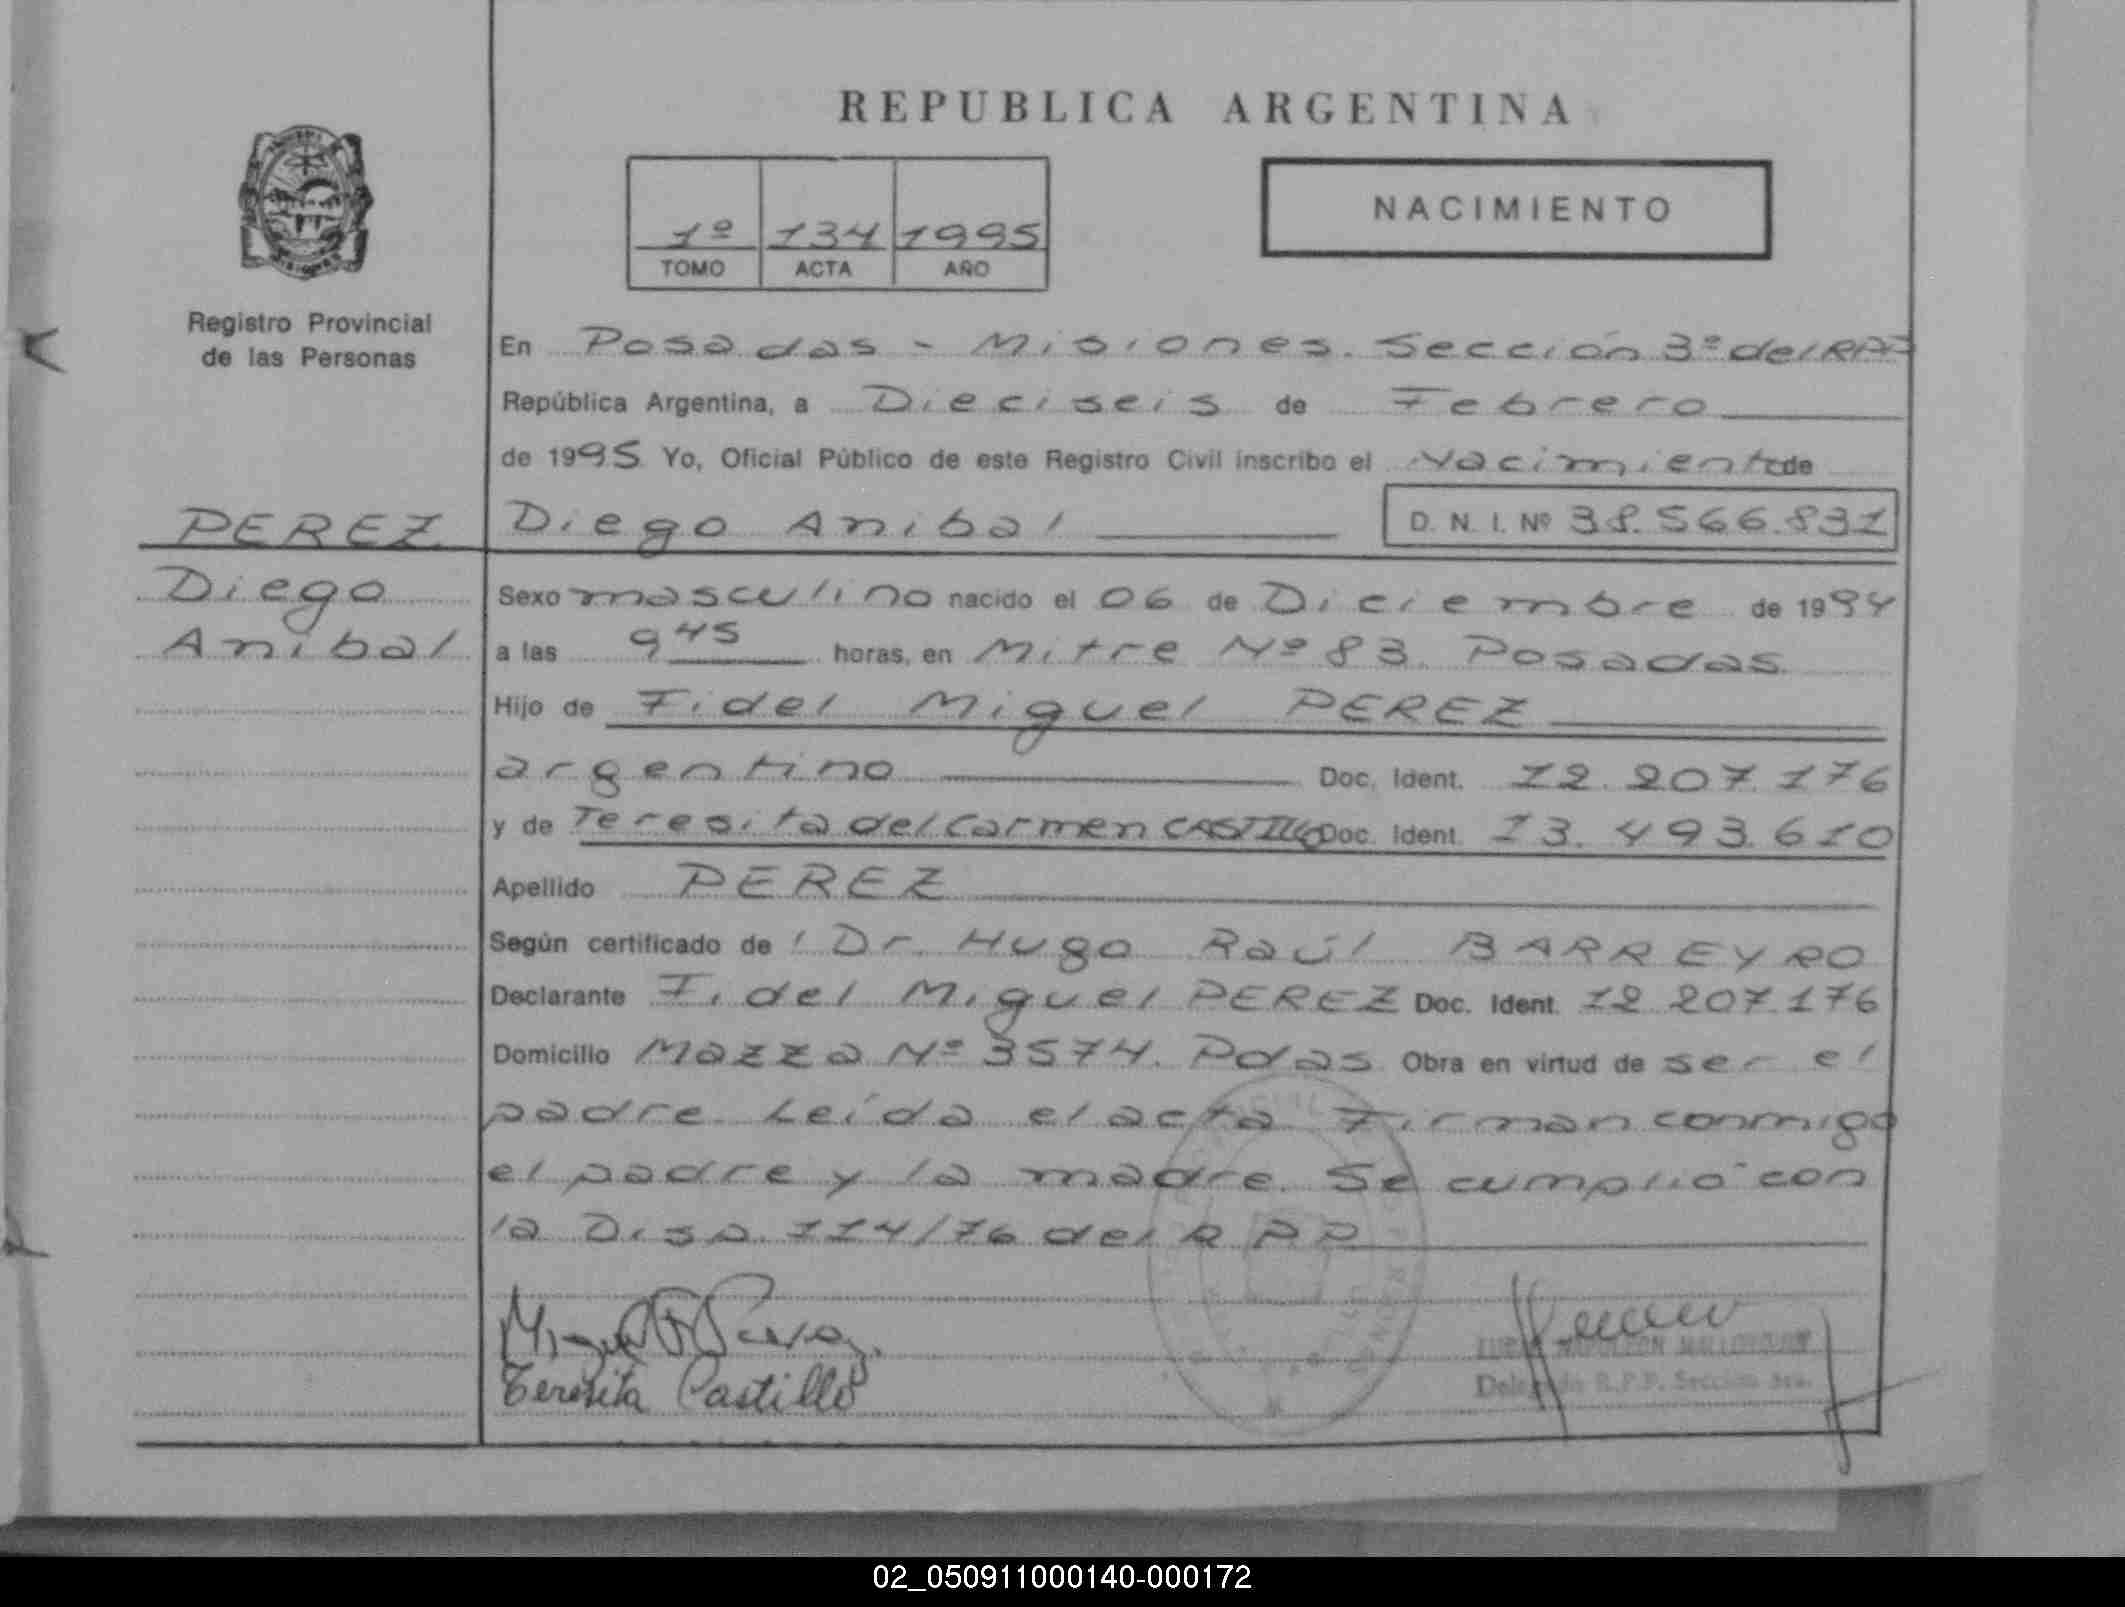 REPUBLICA ARGENTINA
1º 134 1995
TOMO ACTA AÑO
NACIMIENTO
Registro Provincial
de las Personas
En Posadas - Misiones. Sección 3ª del RPP
República Argentina, a Dieciseis de Febrero
de 1995 Yo, Oficial Público de este Registro Civil inscribo el Nacimiento de
PEREZ
Diego Anibal
D. N. I. Nº 38.566.831
Diego
Anibal
Sexo masculino nacido el 06 de Diciembre de 1994
a las 9 45 horas, en Mitre Nº 83. Posadas.
Hijo de Fidel Miguel PEREZ
argentino Doc. Ident. 12.207.176
y de Teresita del Carmen CASTILLO Doc. Ident. 13.493.610
Apellido PEREZ
Según certificado de Dr. Hugo Raúl BARREYRO
Declarante Fidel Miguel PEREZ Doc. Ident. 12.207.176
Domicilio Mazza Nº 3574. Pdas. Obra en virtud de ser el
padre. Leída el acta Firman conmigo
el padre y la madre. Se cumplió con
la Disp. 114/76 del R.P.P.
Teresita Castillo
NAPOLEON
Delegado R.P.P. Sección 3ra.
02_050911000140-000172